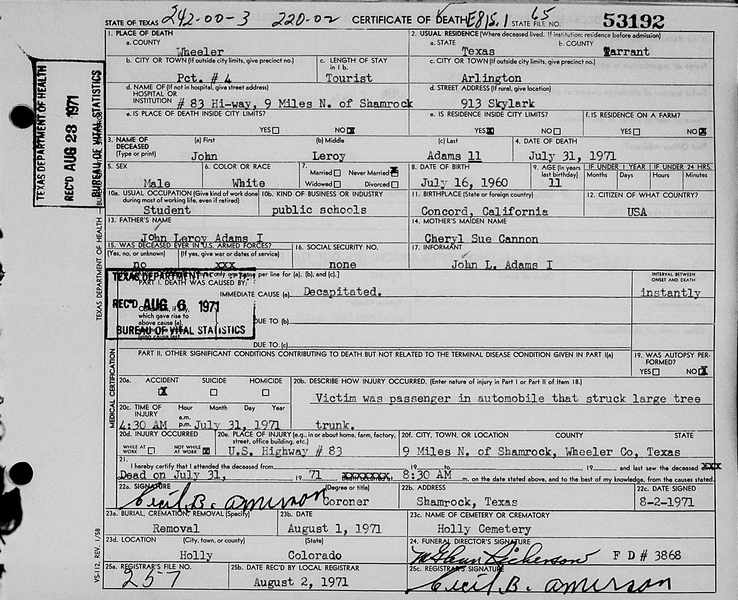 STATE OF TEXAS 242-00-3 220-02 CERTIFICATE OF DEATH STATE FILE NO. 65 53192
1. PLACE OF DEATH
a. COUNTY
Wheeler
2. USUAL RESIDENCE (Where deceased lived. If institution: residence before admission)
a. STATE
Texas
b. COUNTY
Tarrant
b. CITY OR TOWN (If outside city limits, give precinct no.)
Pct. # 4
c. LENGTH OF STAY
in 1 b.
Tourist
c. CITY OR TOWN (If outside city limits, give precinct no.)
Arlington
d. NAME OF (If not in hospital, give street address)
HOSPITAL OR
INSTITUTION # 83 Hi-way, 9 Miles N. of Shamrock
d. STREET ADDRESS (If rural, give location)
913 Skylark
e. IS PLACE OF DEATH INSIDE CITY LIMITS?
YES NO X
e. IS RESIDENCE INSIDE CITY LIMITS?
YES X NO
f. IS RESIDENCE ON A FARM?
YES NO X
3. NAME OF
DECEASED
(Type or print)
(a) First
John
(b) Middle
Leroy
(c) Last
Adams 11
4. DATE OF DEATH
July 31, 1971
5. SEX
Male
6. COLOR OR RACE
White
7.
Married Never Married X
Widowed Divorced
8. DATE OF BIRTH
July 16, 1960
9. AGE (In years
last birthday)
11
IF UNDER 1 YEAR
Months Days
IF UNDER 24 HRS.
Hours Minutes
10a. USUAL OCCUPATION (Give kind of work done
during most of working life, even if retired)
Student
10b. KIND OF BUSINESS OR INDUSTRY
public schools
11. BIRTHPLACE (State or foreign country)
Concord, California
12. CITIZEN OF WHAT COUNTRY?
USA
13. FATHER'S NAME
John Leroy Adams I
14. MOTHER'S MAIDEN NAME
Cheryl Sue Cannon
15. WAS DECEASED EVER IN U.S. ARMED FORCES?
(Yes, no, or unknown) (If yes, give war or dates of service)
no xxx
16. SOCIAL SECURITY NO.
none
17. INFORMANT
John L. Adams I
only one cause per line for (a), (b), and (c).]
PART I. DEATH WAS CAUSED BY:
IMMEDIATE CAUSE (a) Decapitated.
INTERVAL BETWEEN
ONSET AND DEATH
instantly
Conditions, if any,
which gave rise to
above cause (a)
DUE TO (b)
DUE TO (c)
TEXAS DEPARTMENT OF
REC'D AUG 6 1971
BUREAU OF VITAL STATISTICS
PART II. OTHER SIGNIFICANT CONDITIONS CONTRIBUTING TO DEATH BUT NOT RELATED TO THE TERMINAL DISEASE CONDITION GIVEN IN PART I(a)
19. WAS AUTOPSY PER-
FORMED?
YES NO X
20a. ACCIDENT SUICIDE HOMICIDE
X
20b. DESCRIBE HOW INJURY OCCURRED. (Enter nature of injury in Part I or Part II of Item 18.)
Victim was passenger in automobile that struck large tree
trunk.
20c. TIME OF
INJURY
Hour Month Day Year
a.m.
p.m.
4:30 AM July 31, 1971
20d. INJURY OCCURRED
WHILE AT
WORK
NOT WHILE
AT WORK X
20e. PLACE OF INJURY (e.g., in or about home, farm, factory,
street, office building, etc.)
U.S. Highway # 83
20f. CITY, TOWN, OR LOCATION COUNTY STATE
9 Miles N. of Shamrock, Wheeler Co, Texas
21.
I hereby certify that I attended the deceased from 19 to 19 and last saw the deceased xxx
Dead on July 31, 19 71 8:30 AM m. on the date stated above, and to the best of my knowledge, from the causes stated
22a. SIGNATURE (Degree or title)
Cecil B. Amerson Coroner
22b. ADDRESS
Shamrock, Texas
22c. DATE SIGNED
8-2-1971
23a. BURIAL, CREMATION, REMOVAL (Specify)
Removal
23b. DATE
August 1, 1971
23c. NAME OF CEMETERY OR CREMATORY
Holly Cemetery
23d. LOCATION (City, town, or county) (State)
Holly Colorado
24. FUNERAL DIRECTOR'S SIGNATURE
F D # 3868
25a. REGISTRAR'S FILE NO.
257
25b. DATE REC'D BY LOCAL REGISTRAR
August 2, 1971
25c. REGISTRAR'S SIGNATURE
Cecil B. Amerson
TEXAS DEPARTMENT OF HEALTH
REC'D AUG 23 1971
BUREAU OF VITAL STATISTICS
MEDICAL CERTIFICATION
VS-112, REV. 1/58
TEXAS DEPARTMENT OF HEALTH